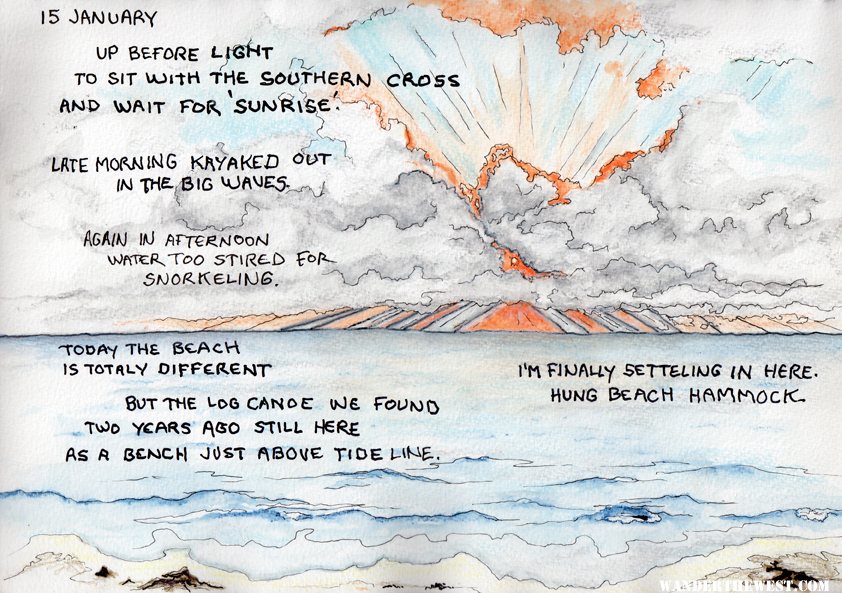 15 JANUARY
UP BEFORE LIGHT
TO SIT WITH THE SOUTHERN CROSS
AND WAIT FOR 'SUNRISE'.
LATE MORNING KAYAKED OUT
IN THE BIG WAVES.
AGAIN IN AFTERNOON
WATER TOO STIRED FOR
SNORKELING.
TODAY THE BEACH
IS TOTALY DIFFERENT
BUT THE LOG CANOE WE FOUND
TWO YEARS AGO STILL HERE
AS A BENCH JUST ABOVE TIDE LINE.
I'M FINALLY SETTELING IN HERE.
HUNG BEACH HAMMOCK
WANDERTHEWEST.COM